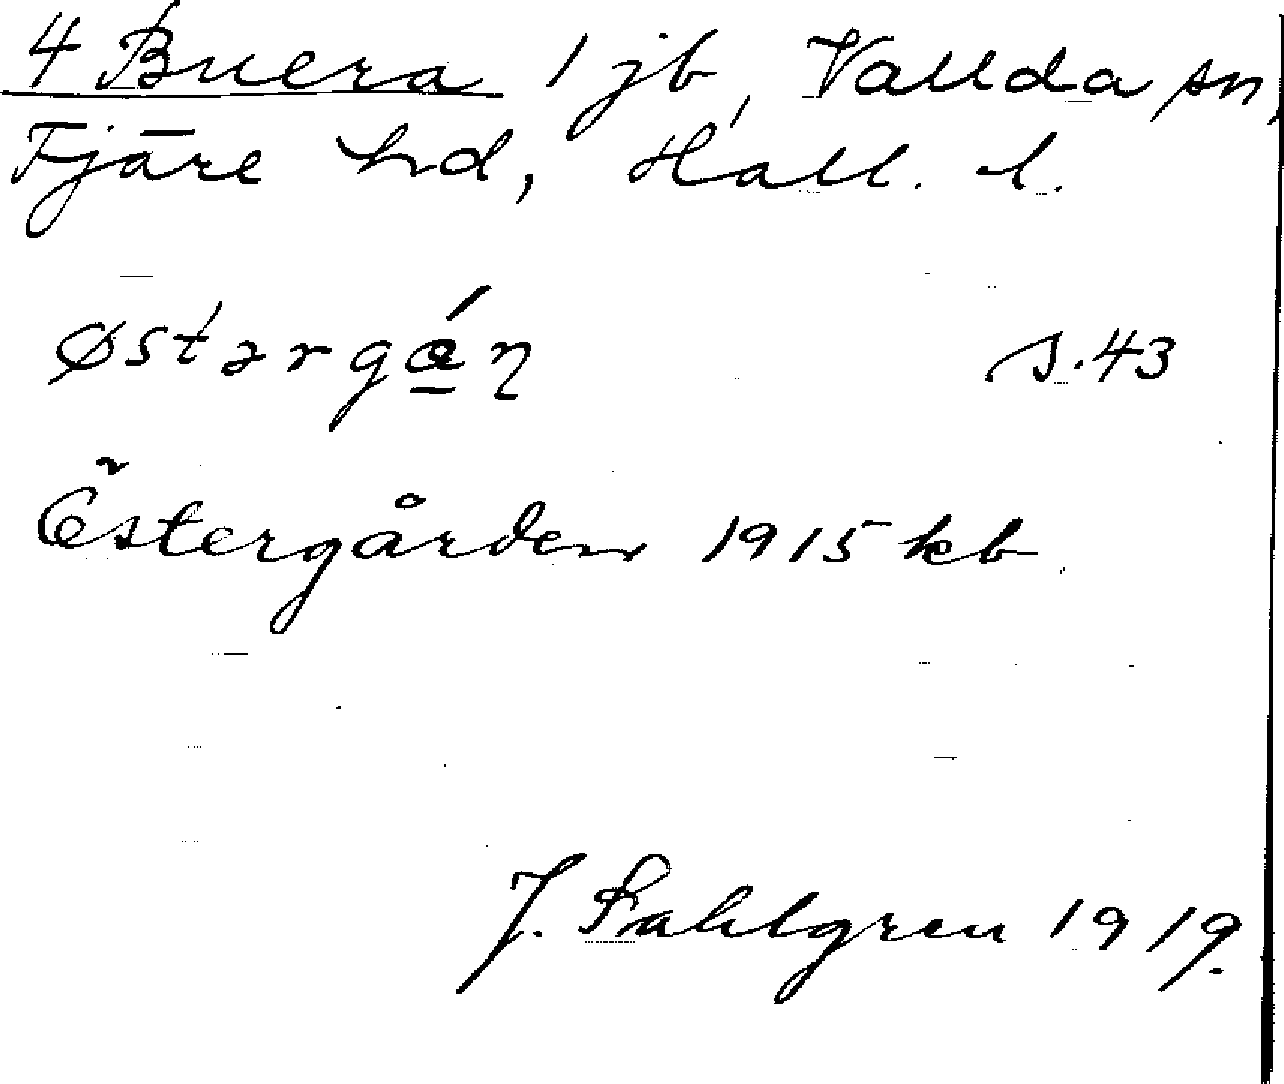 4 Buera 1 jb, Vallda sn,
Fjäre hd, Hall. l.
østərgą́ŋ s.43
Östergården 1915 kb
J. Sahlgren 1919.